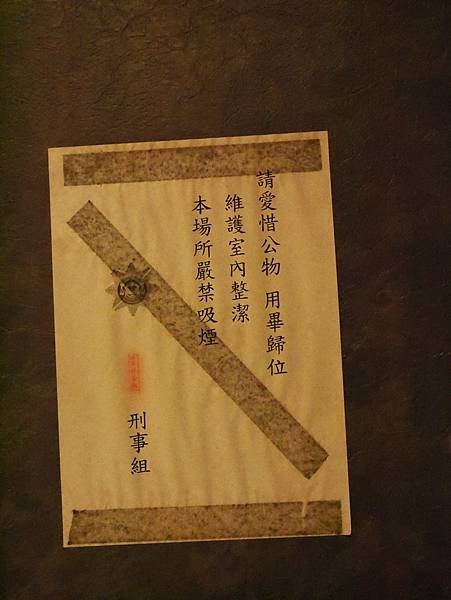 請愛惜公物 用畢歸位
維護室內整潔
本場所嚴禁吸煙
刑事組